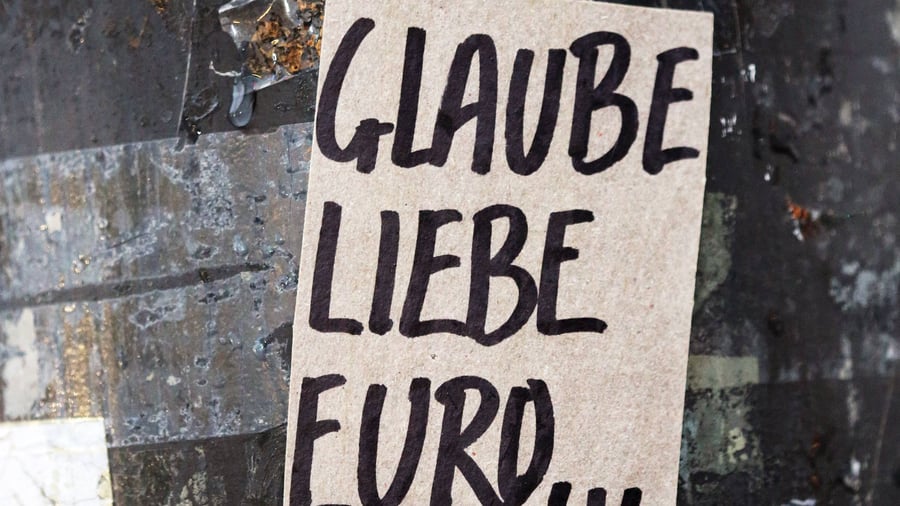 GLAUBE
LIEBE
EURO